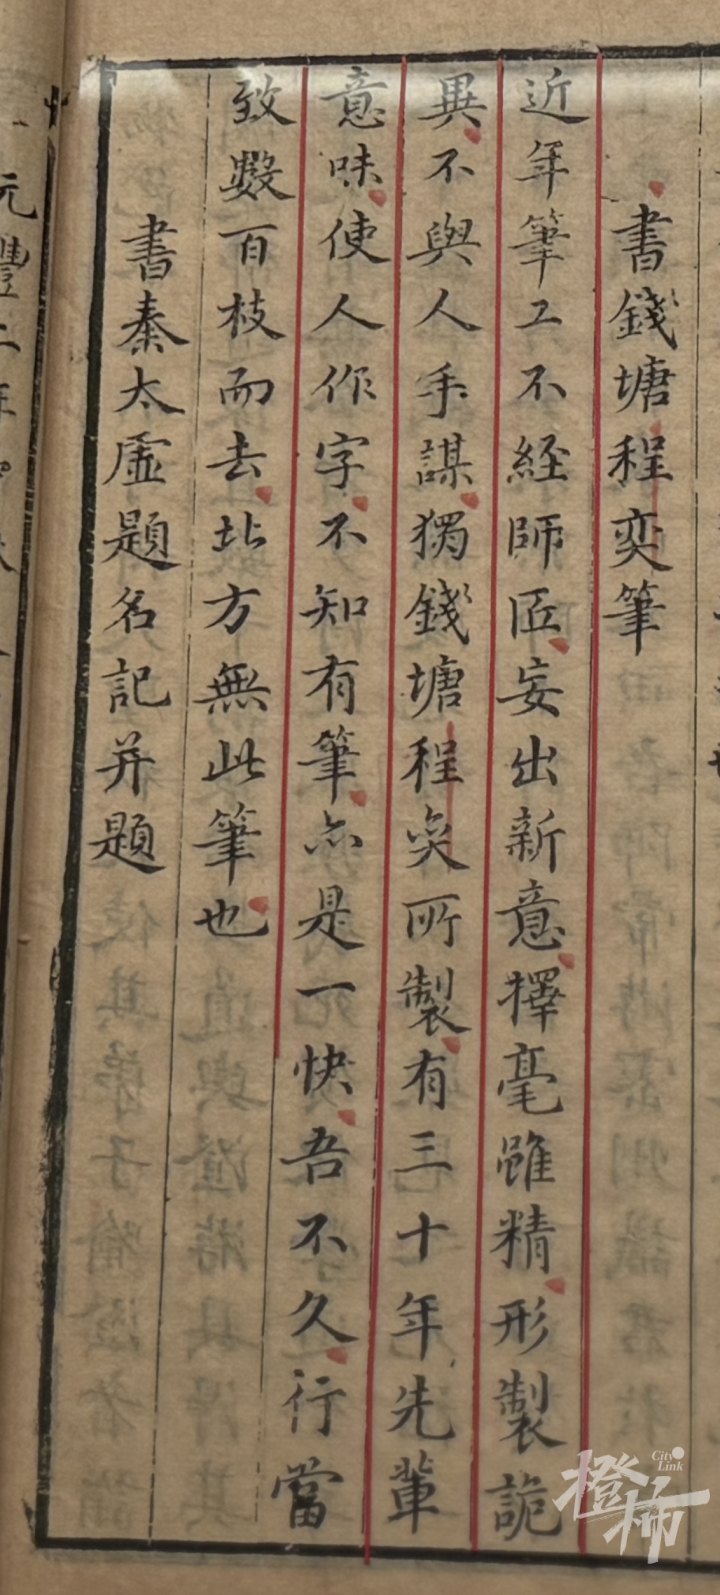 書錢塘程奕筆
近年筆工不經師匠妄出新意擇毫雖精形製詭
異不與人手謀獨錢塘程奕所製有三十年先輩
意味使人作字不知有筆亦是一快吾不久行當
致數百枝而去北方無此筆也
書秦太虛題名記并題
橙柿
City
Link